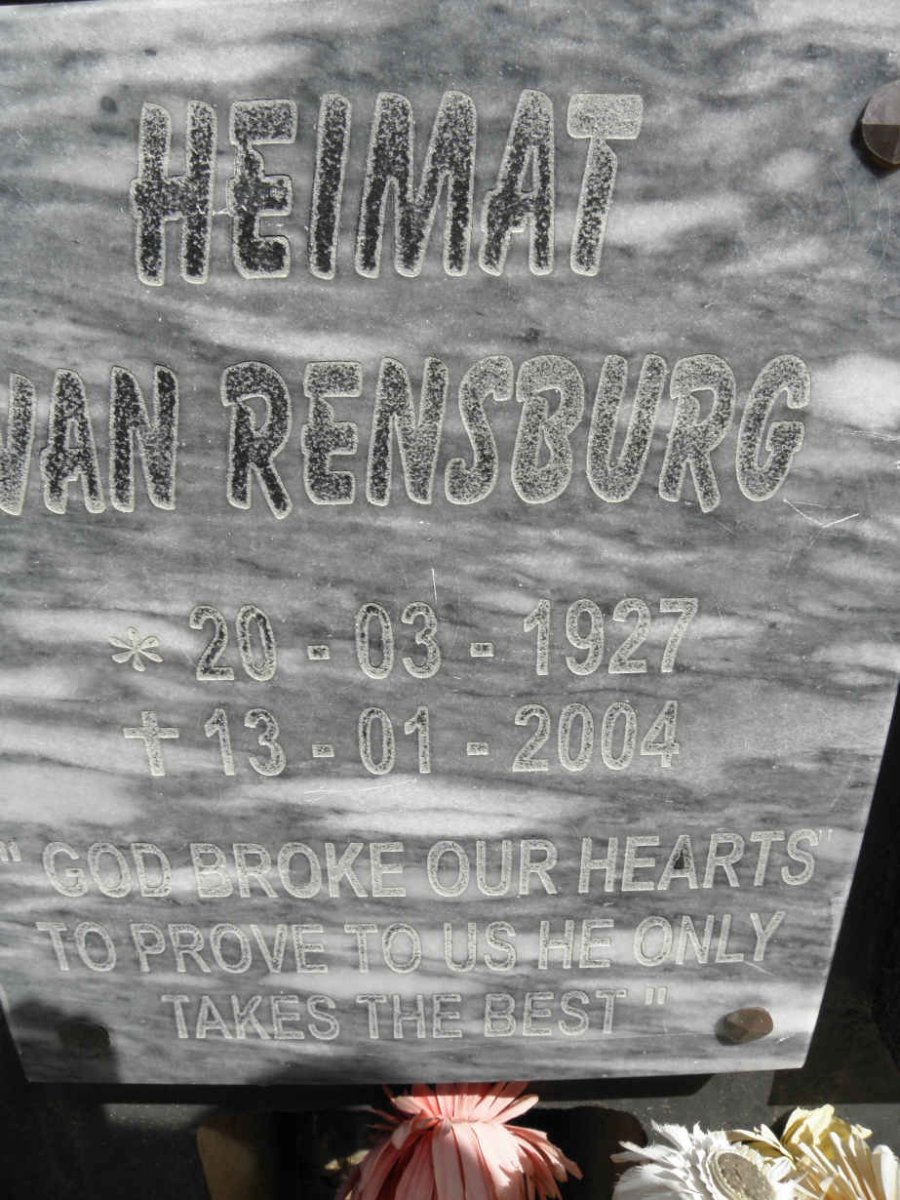 HEIMAT
VAN RENSBURG
* 20 - 03 - 1927
† 13 - 01 - 2004
" GOD BROKE OUR HEARTS"
TO PROVE TO US HE ONLY
TAKES THE BEST "